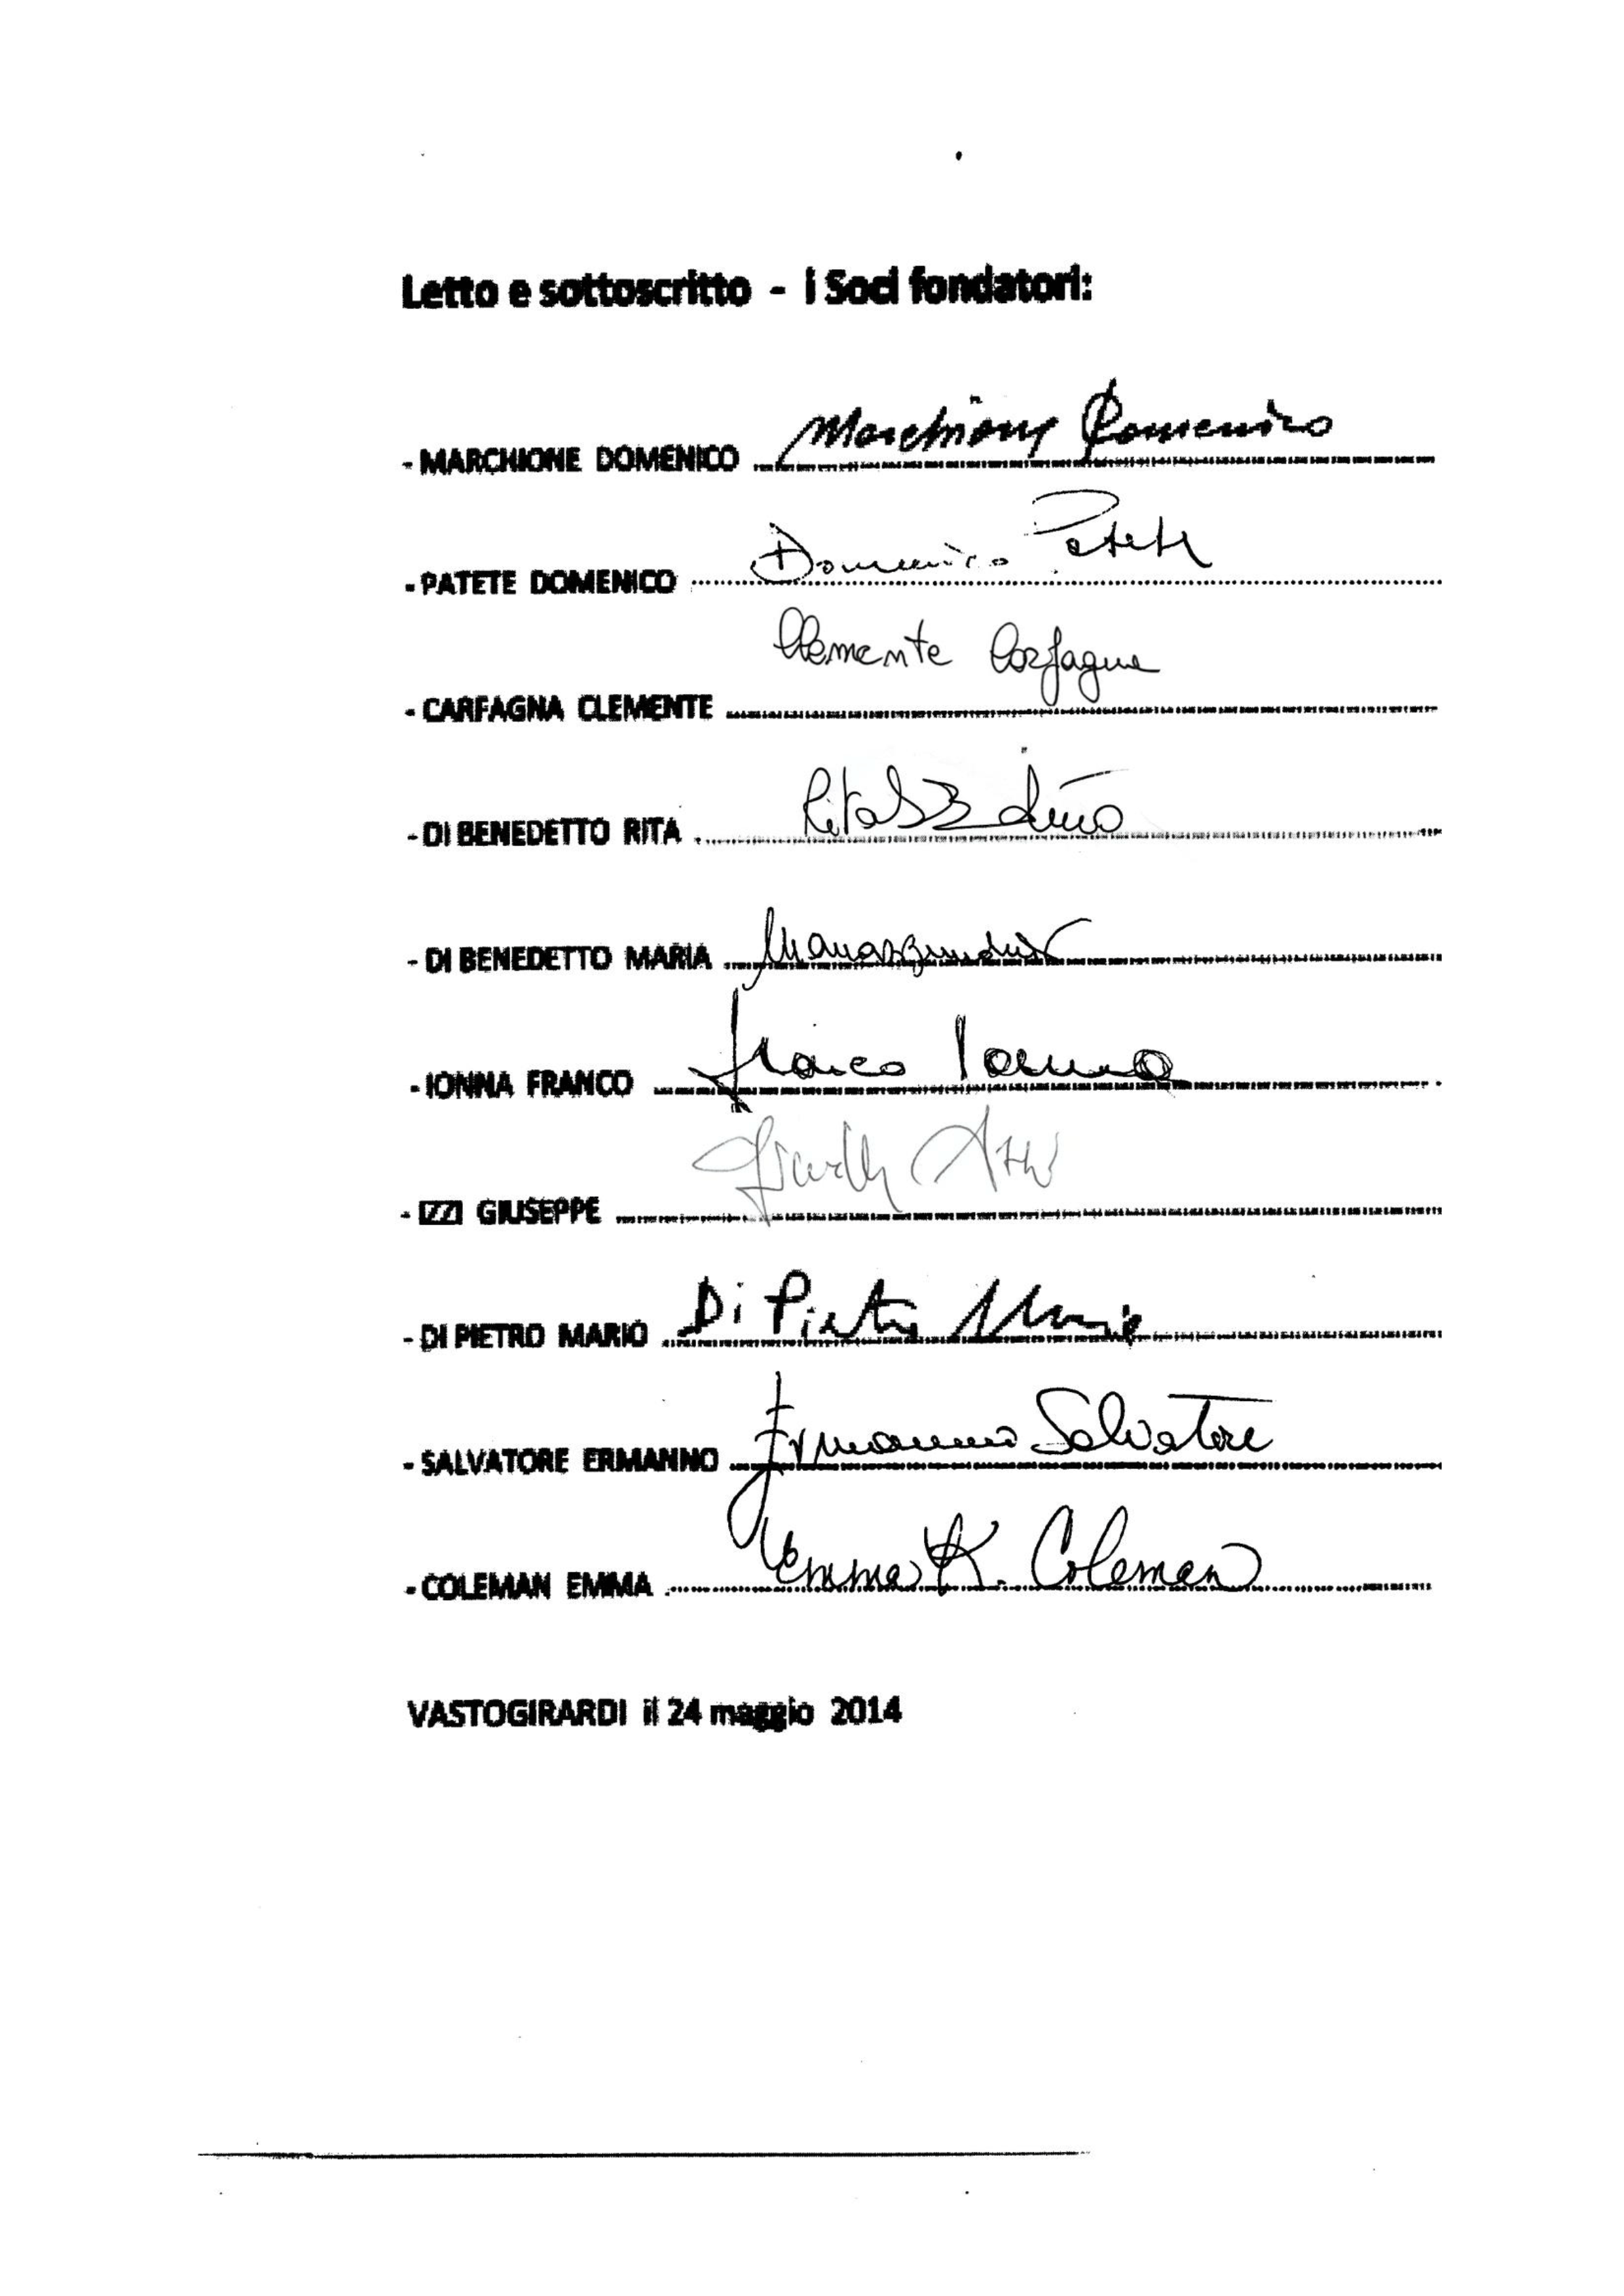 Letto e sottoscritto - i Soci fondatori:
- MARCHIONE DOMENICO Marchione Domenico
- PATETE DOMENICO Domenico Patete
Clemente Carfagna
- CARFAGNA CLEMENTE
- DI BENEDETTO RITA Rita
- DI BENEDETTO MARIA Maria
- IONNA FRANCO Franco Ionna
- IZZI GIUSEPPE
- DI PIETRO MARIO Di Pietro Mario
- SALVATORE ERMANNO Ermanno Salvatore
- COLEMAN EMMA Emma K. Coleman
VASTOGIRARDI il 24 maggio 2014